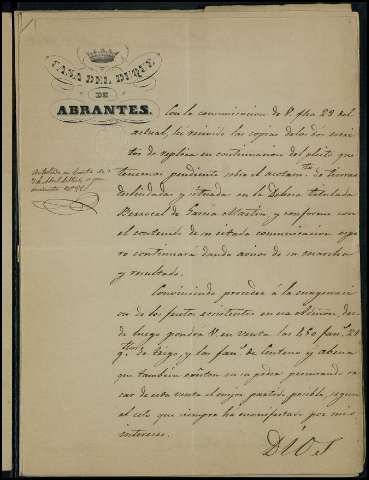 CASA DEL DUQUE
DE
ABRANTES.
Con la comunicacion de V. fha 29 del
actual, he recivido las copias de los dos escri-
tos de replica en continuacion del pleito que
tenemos pendiente sobre el acotam.to de tierras
deslindadas y situadas en la Dehesa titulada
Berrocal de Garcia Martin, y conforme con
el contenido de su citada comunicacion espe-
ro continuará dando avisos de su marcha
y resultado.
Conviniendo proceder á la enagenaci-
on de los frutos existentes en esa admon, des-
de luego pondrá V. en venta las 480 fan.s 21
q.s de trigo, y las fan.s de Centeno y abena
que tambien existen en su poder procurando sa-
car de esta venta el mejor partido posible, segun
el celo que siempre ha manifestado por mis
intereses.
DIOS